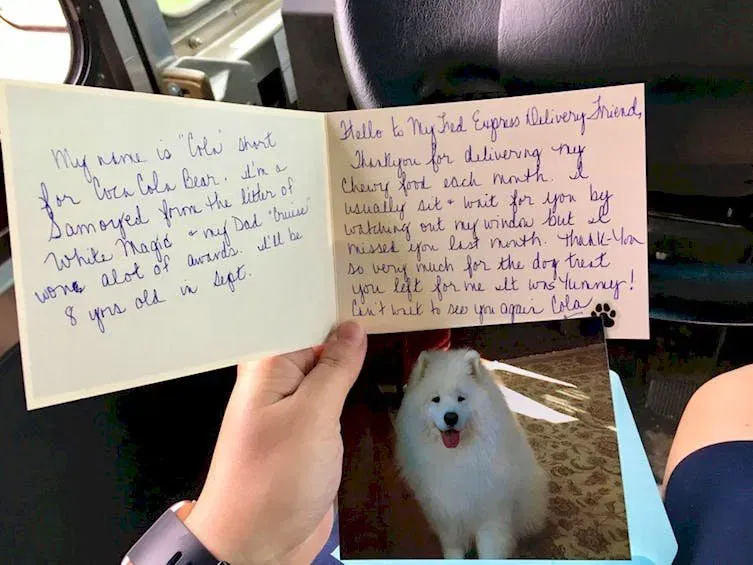 My name is "Cola" short
for "Coca Cola Bear. I'm a
Samoyed from the litter of
White Magic + my Dad "Cruise"
won alot of awards. I'll be
8 yrs old in Sept.
Hello to My Fed Express Delivery Friend,
Thankyou for delivering my
Chewy food each month. I
usually sit + wait for you by
watching out my window but I
missed you last month. Thank-You
so very much for the dog treat
you left for me It was Yummey!
Can't wait to see you again Cola